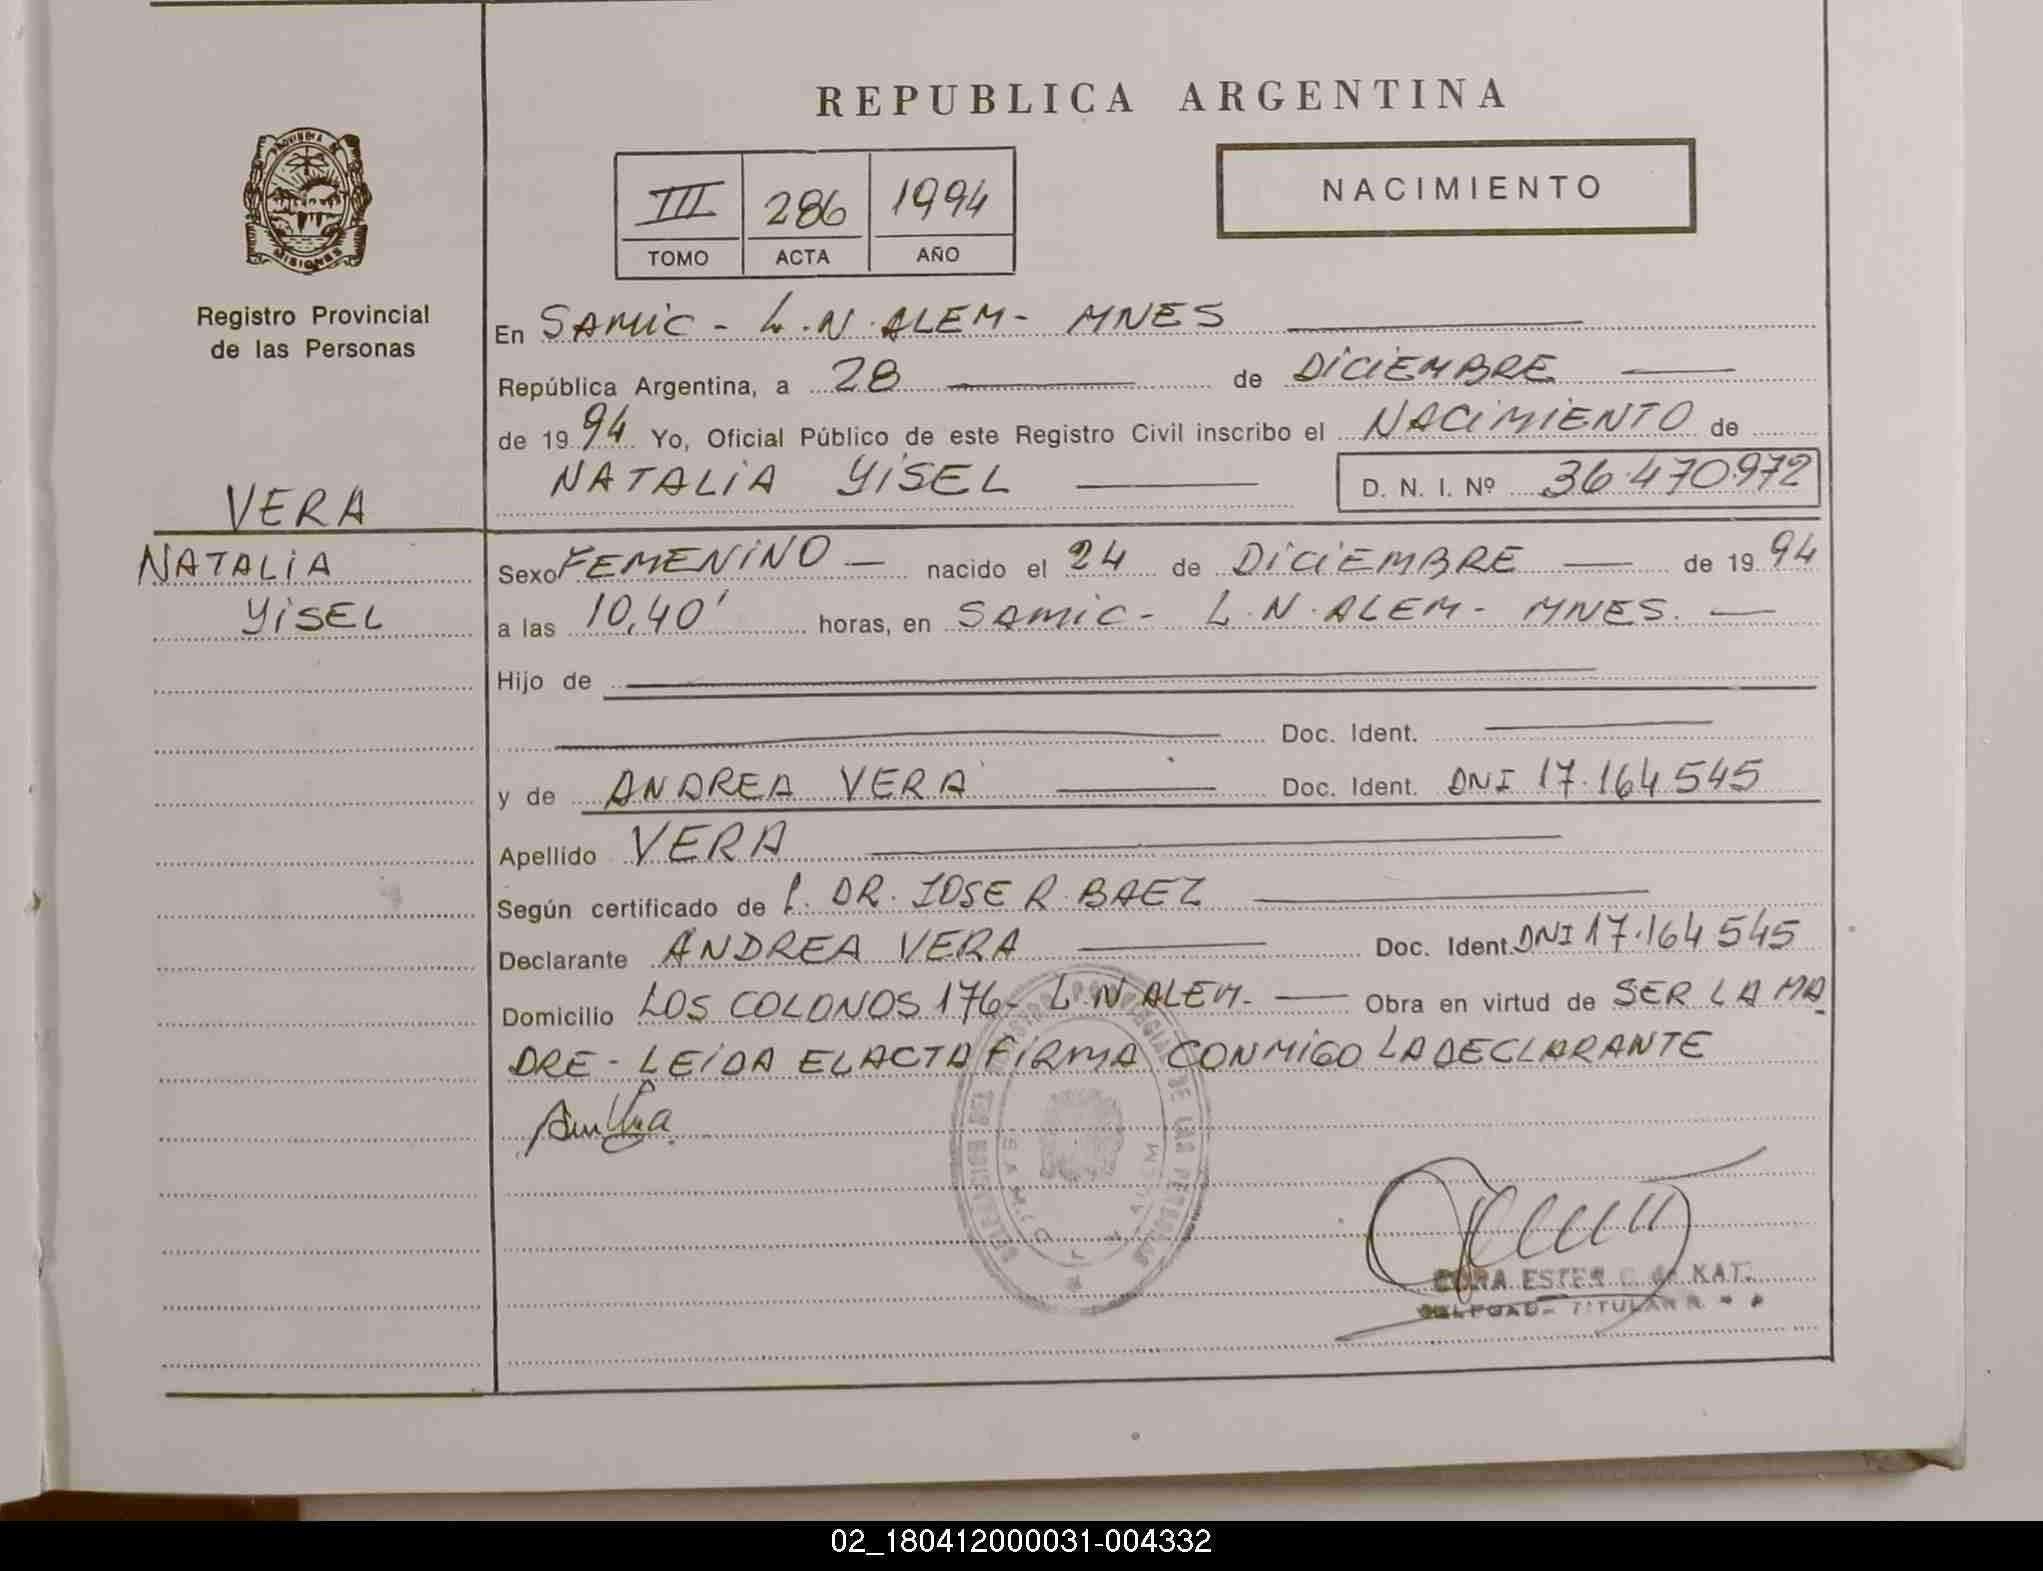 REPUBLICA ARGENTINA
PROVINCIA DE
MISIONES
Registro Provincial
de las Personas
III 286 1994
TOMO ACTA AÑO
NACIMIENTO
En SAMIC - L.N. ALEM - MNES
República Argentina, a 28 de DICIEMBRE
de 1994 Yo, Oficial Público de este Registro Civil inscribo el NACIMIENTO de
NATALIA YISEL D. N. I. Nº 36.470.972
VERA
NATALIA
YISEL
Sexo FEMENINO nacido el 24 de DICIEMBRE de 1994
a las 10,40' horas, en SAMIC - L.N. ALEM - MNES.
Hijo de
Doc. Ident.
y de ANDREA VERA Doc. Ident. DNI 17.164.545
Apellido VERA
Según certificado de DR. JOSE R. BAEZ
Declarante ANDREA VERA Doc. Ident. DNI 17.164.545
Domicilio LOS COLONOS 176 - L.N. ALEM. Obra en virtud de SER LA MA
DRE - LEIDA EL ACTA FIRMA CONMIGO LA DECLARANTE
ESTER
TITULAR
02_180412000031-004332